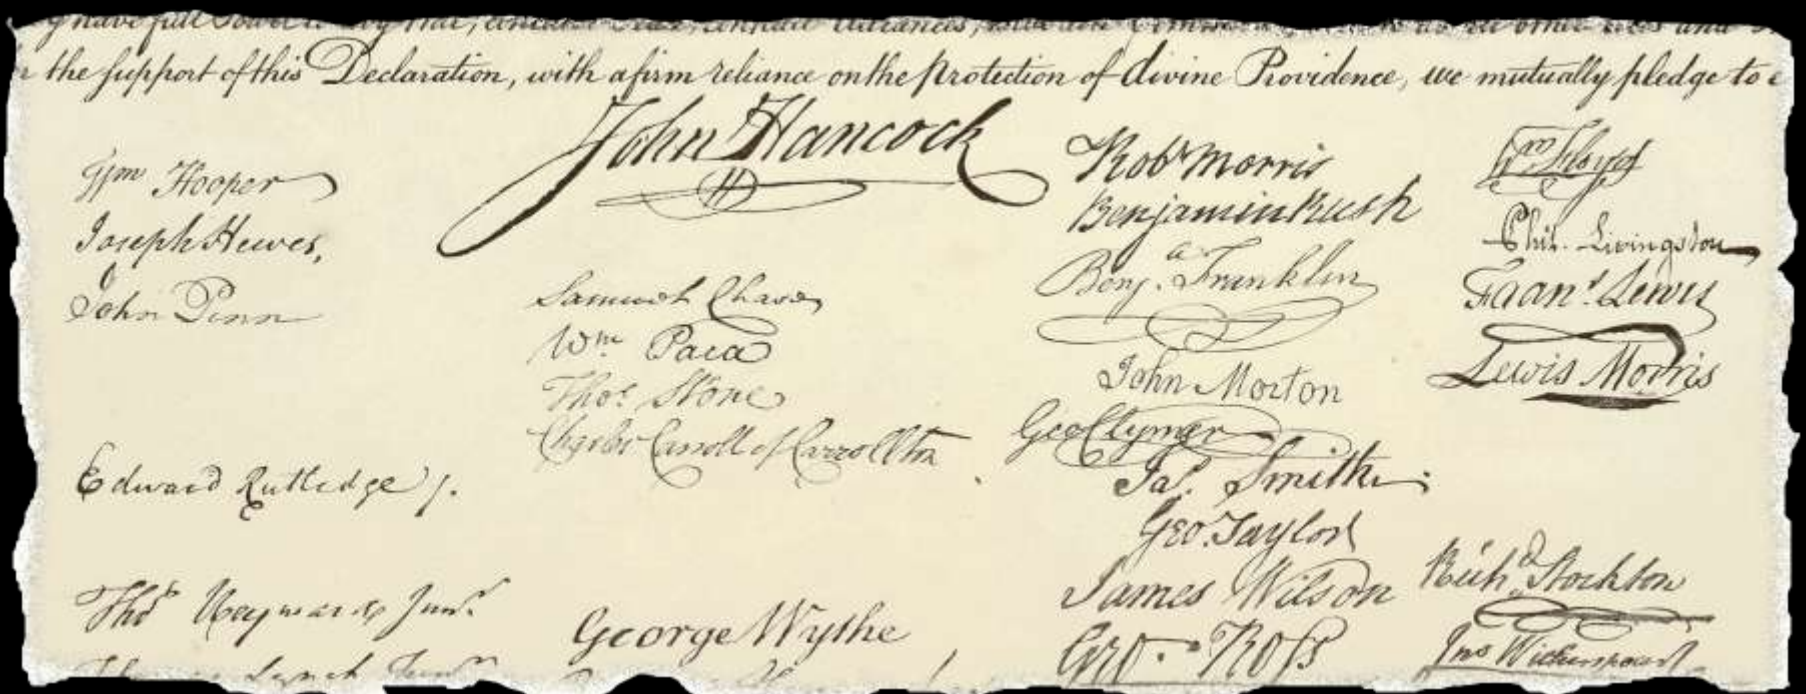 the support of this Declaration, with a firm reliance on the Protection of divine Providence, we mutually pledge to
John Hancock
Wm Hooper
Joseph Hewes,
John Penn
Edward Rutledge /.
Thos Heyward Junr.
Lynch Junr.
Samuel Chase
Wm. Paca
Thos. Stone
Charles Carroll of Carrollton
George Wythe
Robt Morris
Benjamin Rush
Benja. Franklin
John Morton
Geo Clymer
Jas. Smith
Geo. Taylor
James Wilson
Geo. Ross
Wm Floyd
Phil. Livingston
Frans. Lewis
Lewis Morris
Richd. Stockton
Jno Witherspoon